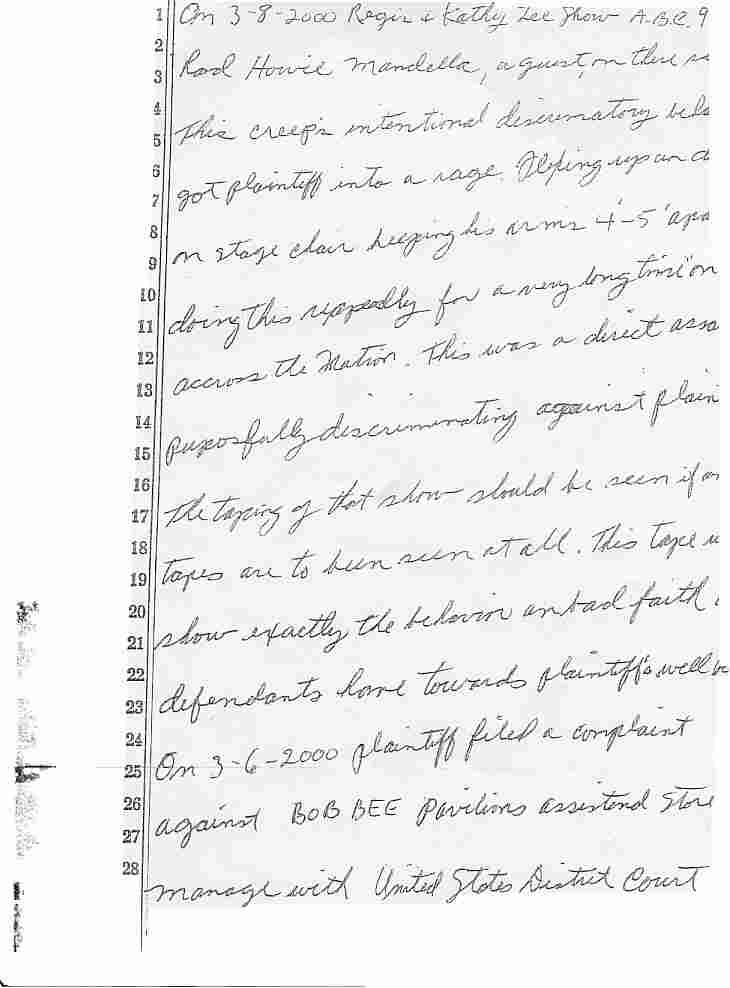 1 On 3-8-2000 Regis & Kathy Lee Show A.B.C. 9
2
3 had Howie Mandella, a guest, on there
4
5 This creep's intentional discrimatory beha
6 got plaintiff into a rage. up on a
7
8 on stage chair keeping his arms 4'-5' apa
9
10 doing this reppeadly for a very long time "on
11
12 accross the Nation. This was a direct assa
13
14 purposfally discriminating against plain
15
16 The taping of that show should be seen if an
17
18 tapes are to been seen at all. This tape w
19
20 show exactly the behavior an bad faith
21
22 defendants have towards plaintiff's well be
23
24 On 3-6-2000 plaintiff filed a complaint
25
26 against BOB BEE Pavilions assistend Store
27
28 manage with United States District Court